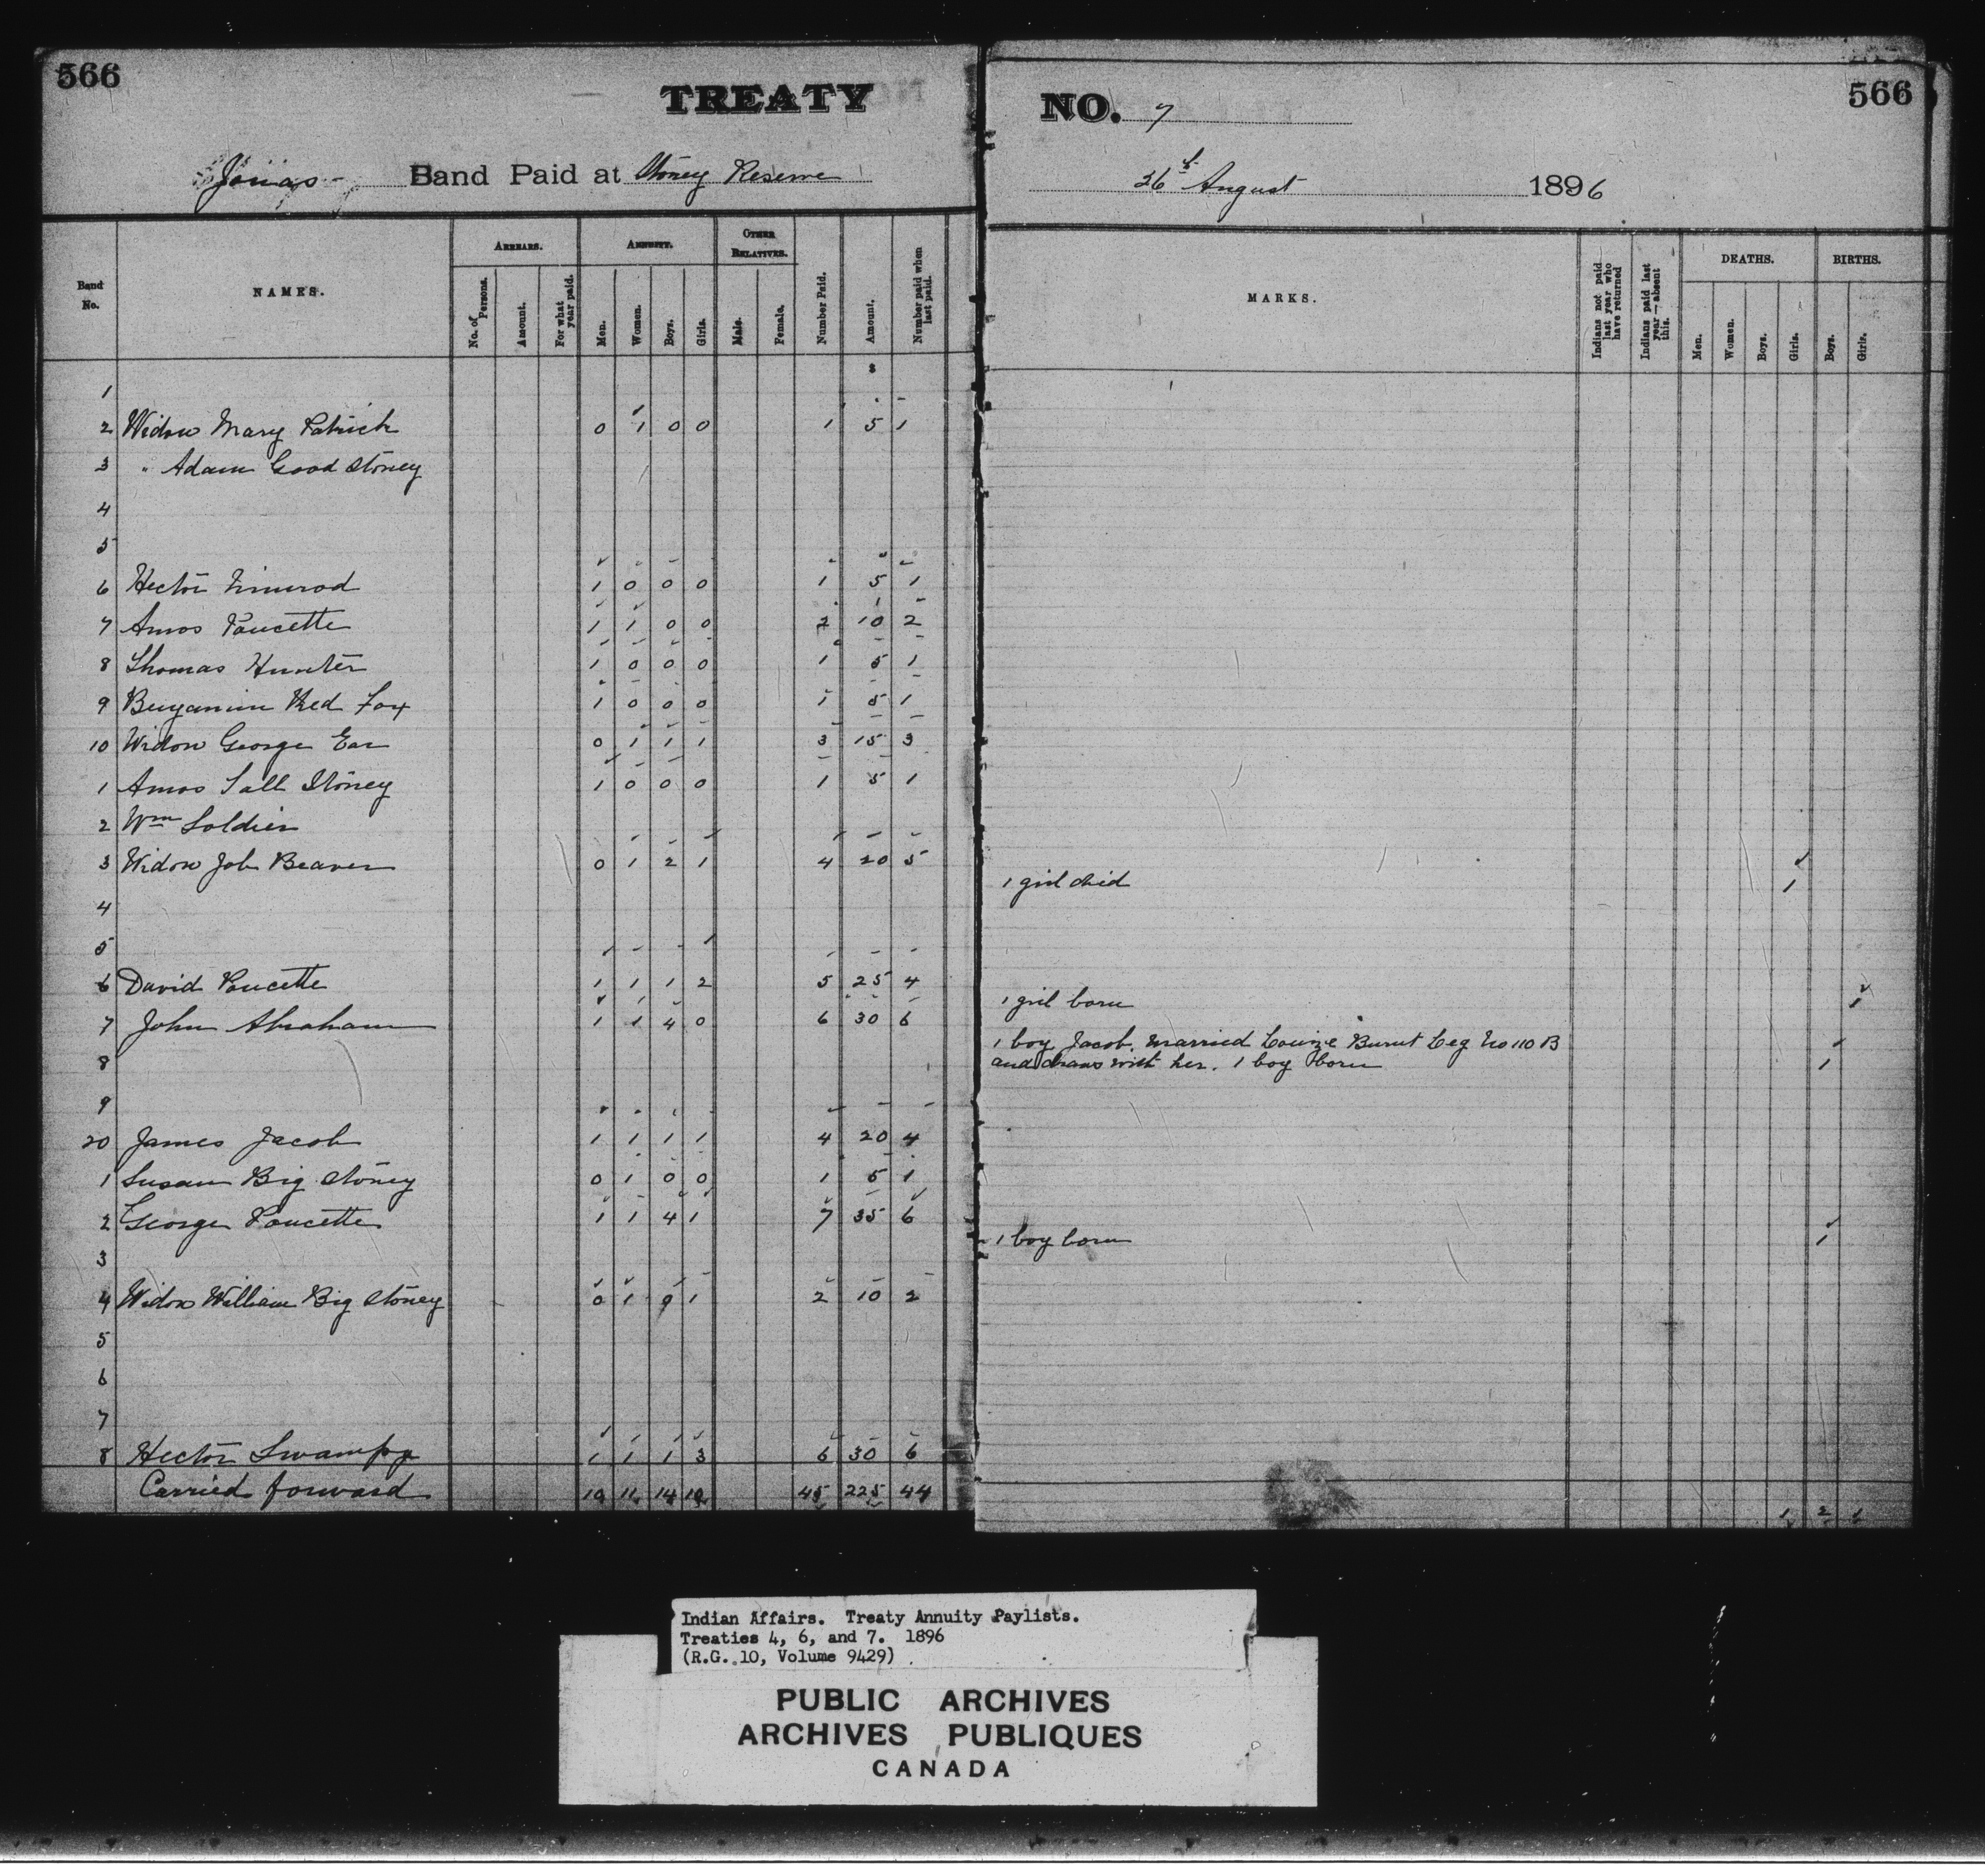 566
TREATY
NO. 7
566
Jonas Band Paid at Stoney Reserve
26th August 1896
Band No.
NAMES.
ARREARS.
No. of Persons.
Amount.
For what year paid.
ANNUITY.
Men.
Women.
Boys.
Girls.
OTHER RELATIVES.
Male.
Female.
Number Paid.
Amount.
Number paid when last paid.
MARKS.
Indians not paid last year who have returned
Indians paid last year—absent this.
DEATHS.
Men.
Women.
Boys.
Girls.
BIRTHS.
Boys.
Girls.
$
1
2 Widow Mary Patrick 0 1 0 0 1 5 1
3 " Adam Good Stoney
4
5
6 Hector Nimrod 1 0 0 0 1 5 1
7 Amos Poucette 1 1 0 0 2 10 2
8 Thomas Hunter 1 0 0 0 1 5 1
9 Benjamin Red Fox 1 0 0 0 1 5 1
10 Widow George Ear 0 1 1 1 3 15 3
1 Amos Tall Stoney 1 0 0 0 1 5 1
2 Wm Soldier
3 Widow Job Beaver 0 1 2 1 4 20 5
1 girl died 1
4
5
6 David Poucette 1 1 1 2 5 25 4
1 girl born 1
7 John Abraham 1 1 4 0 6 30 6
1 boy Jacob, married Louize Burnt Leg No 110 B
8 and draws with her. 1 boy born 1
9
20 James Jacob 1 1 1 1 4 20 4
1 Susan Big Stoney 0 1 0 0 1 5 1
2 George Poucette 1 1 4 1 7 35 6
1 boy born 1
3
4 Widow William Big Stoney 0 1 0 1 2 10 2
5
6
7
8 Hector Swampy 1 1 1 3 6 30 6
Carried forward 10 11 14 10 45 225 44
1 2 1
Indian Affairs. Treaty Annuity Paylists.
Treaties 4, 6, and 7. 1896
(R.G. 10, Volume 9429)
PUBLIC ARCHIVES
ARCHIVES PUBLIQUES
CANADA